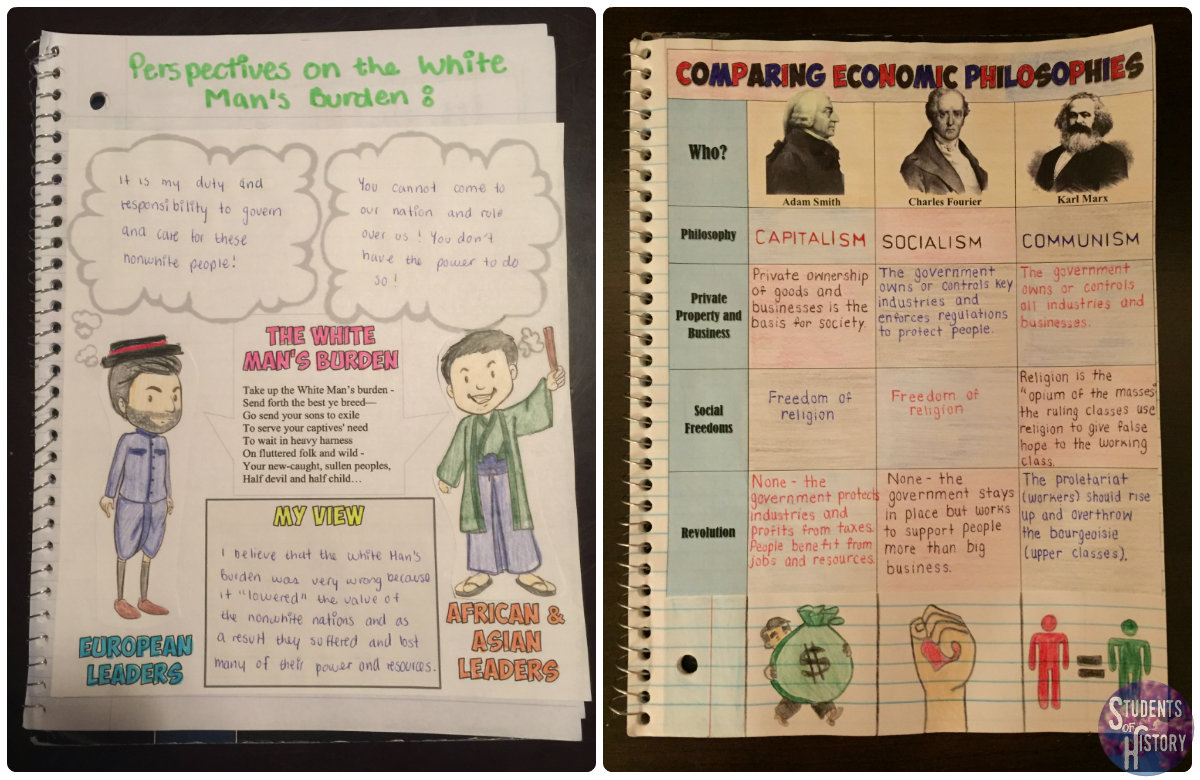 Perspectives on the White
Man's Burden :
It is my duty and
responsibility to govern
and care for these
nonwhite people!
You cannot come to
our nation and rule
over us! You don't
have the power to do
so!
THE WHITE
MAN'S BURDEN
Take up the White Man's burden -
Send forth the best ye breed—
Go send your sons to exile
To serve your captives' need
To wait in heavy harness
On fluttered folk and wild -
Your new-caught, sullen peoples,
Half devil and half child…
MY VIEW
I believe that the White Man's
Burden was very wrong because
it "lowered" the value of
the nonwhite nations and as
a result they suffered and lost
many of their power and resources.
EUROPEAN
LEADERS
AFRICAN &
ASIAN
LEADERS
COMPARING ECONOMIC PHILOSOPHIES
Who?
Adam Smith
Charles Fourier
Karl Marx
Philosophy
CAPITALISM
SOCIALISM
COMMUNISM
Private
Property and
Business
Private ownership
of goods and
businesses is the
basis for society.
The government
owns or controls key
industries and
enforces regulations
to protect people.
The government
owns or controls
all industries and
businesses.
Social
Freedoms
Freedom of
religion
Freedom of
religion
Religion is the
"opium of the masses"
the ruling classes use
religion to give false
hope to the working
class.
Revolution
None - the
government protects
industries and
profits from taxes.
People benefit from
jobs and resources.
None - the
government stays
in place but works
to support people
more than big
business.
The proletariat
(workers) should rise
up and overthrow
the bourgeoisie
(upper classes).
$
STUDENTS
OF
HISTORY